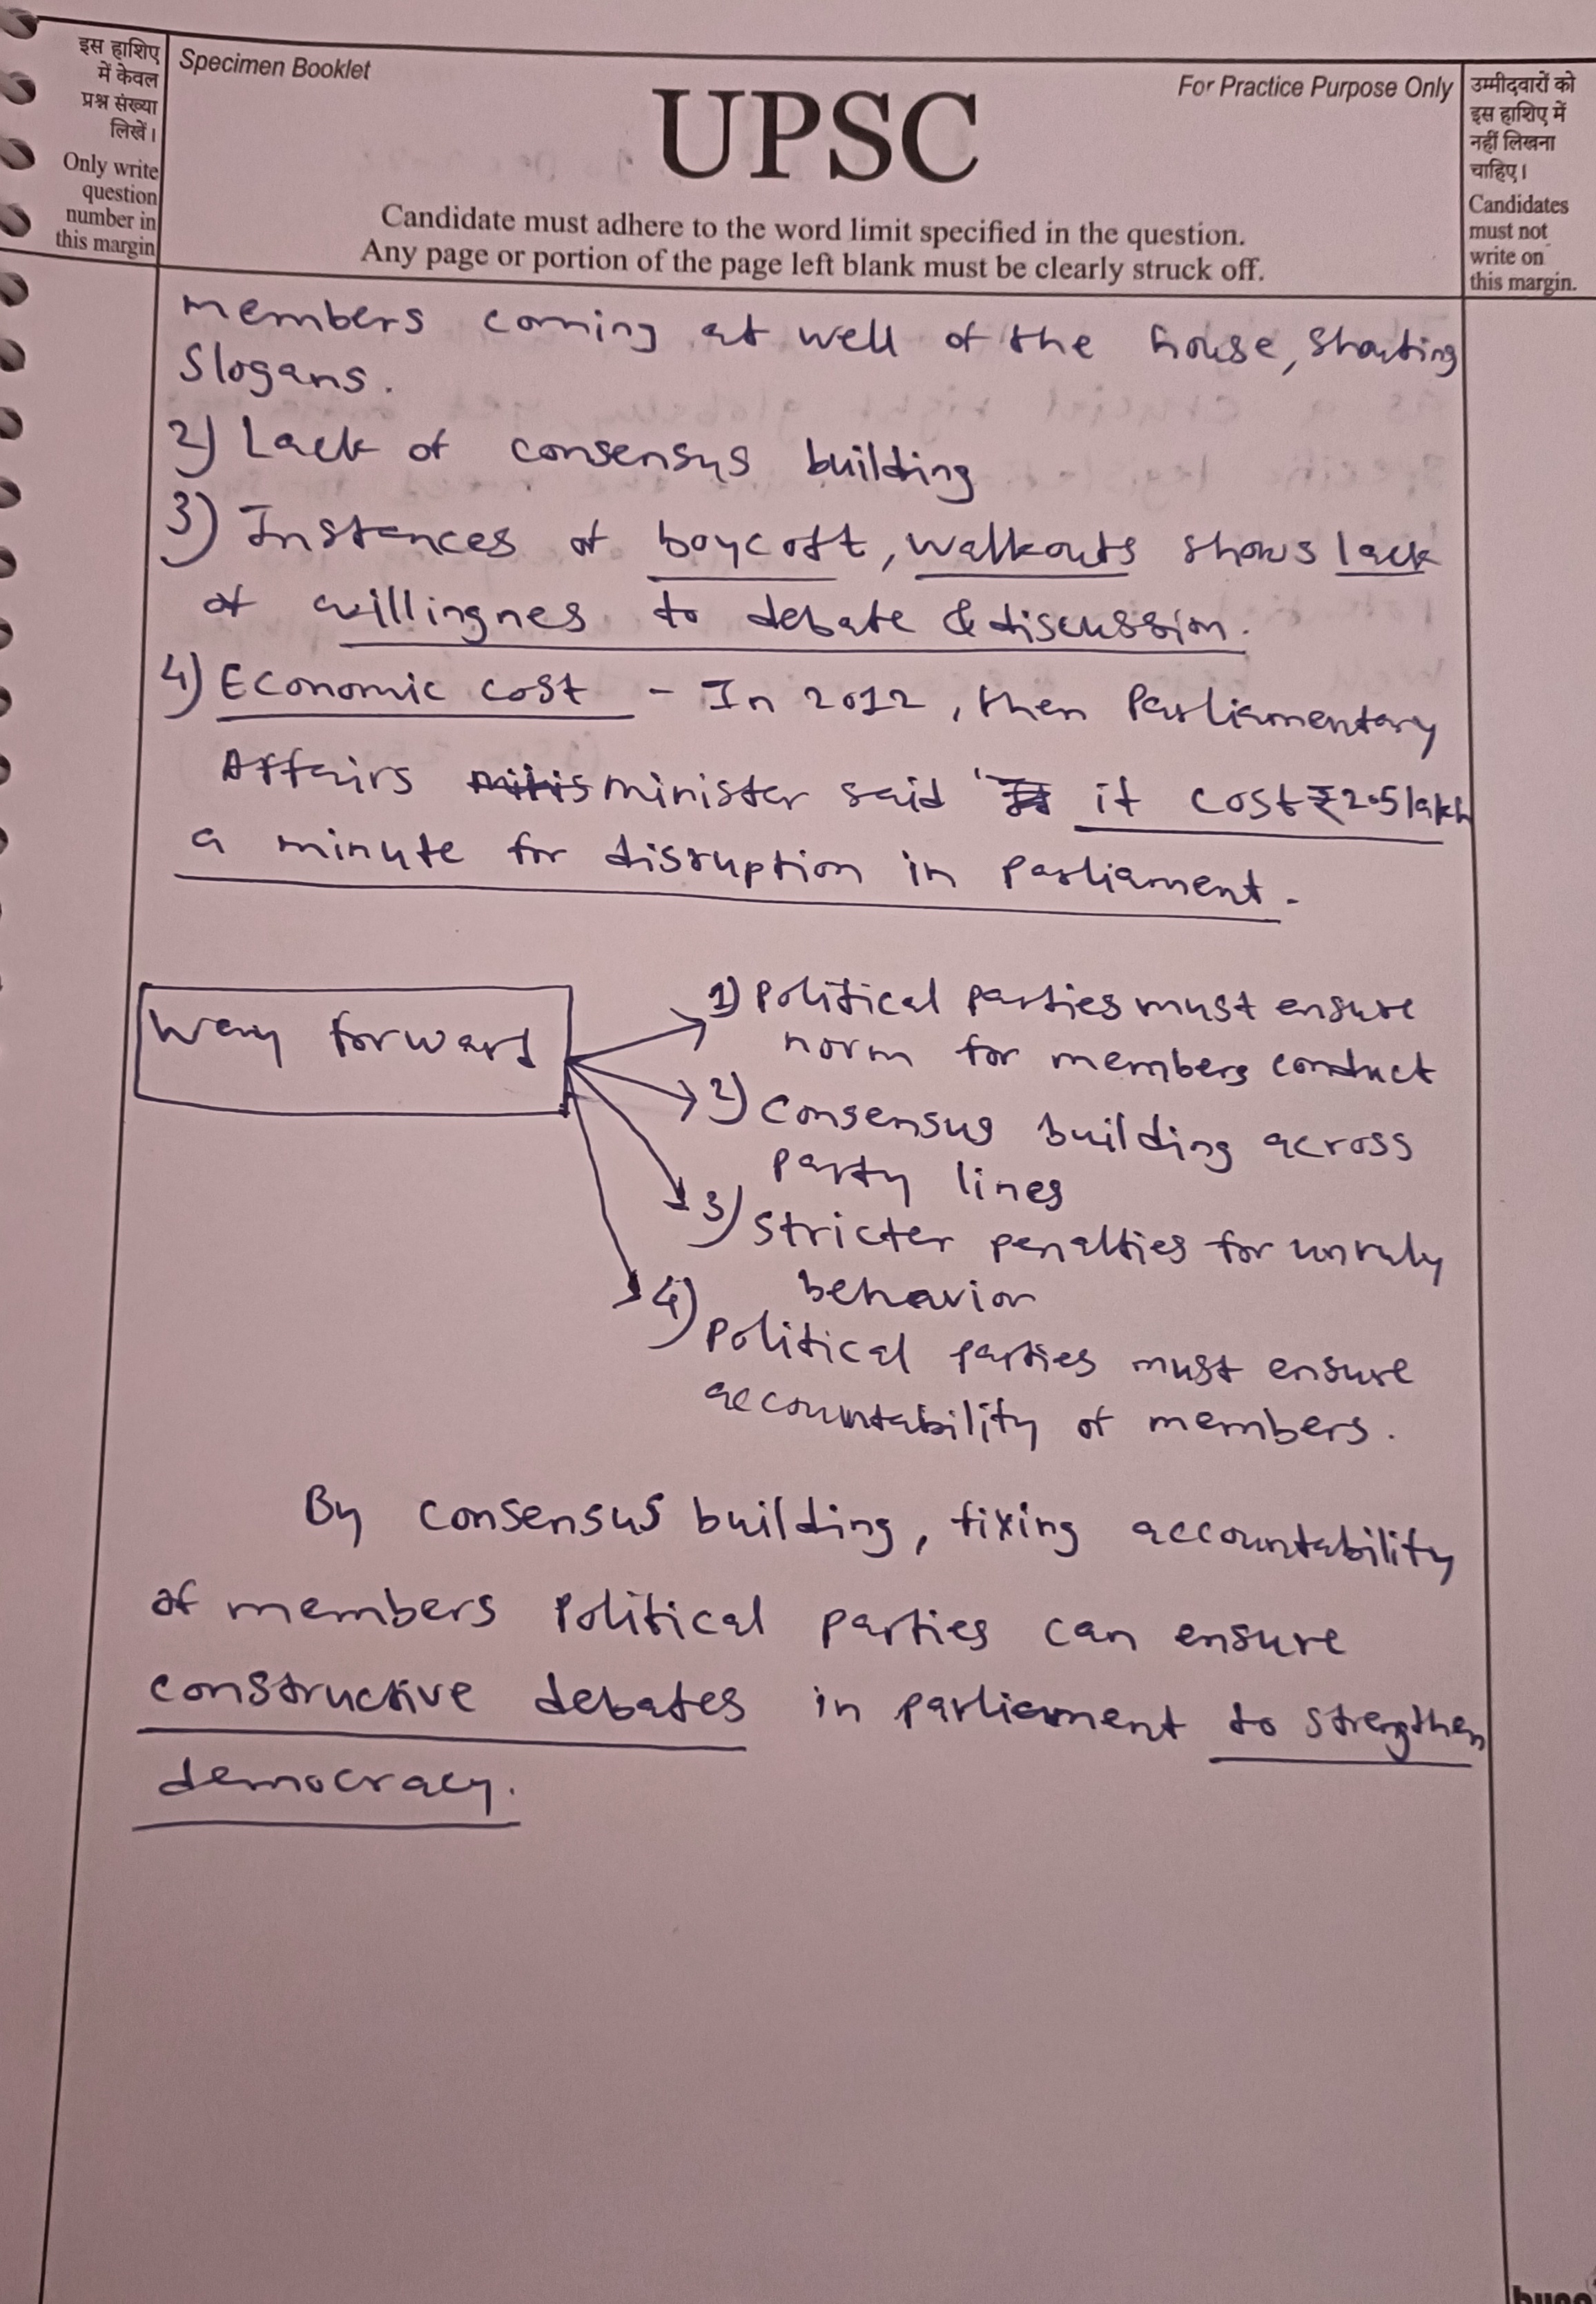 इस हाशिए
में केवल
प्रश्न संख्या
लिखें।
Only write
question
number in
this margin
Specimen Booklet
For Practice Purpose Only
UPSC
Candidate must adhere to the word limit specified in the question.
Any page or portion of the page left blank must be clearly struck off.
उम्मीदवारों को
इस हाशिए में
नहीं लिखना
चाहिए।
Candidates
must not
write on
this margin.
members coming at well of the house, shouting
slogans.
2) Lack of consensus building
3) Instances of boycott, walkouts shows lack
of willingnes to debate & discussion.
4) Economic cost - In 2012, then Parliamentary
Affairs minister said ' it cost ₹2.5 lakh
a minute for disruption in Parliament.
Way forward
1) Political parties must ensure
norm for members conduct
2) Consensus building across
party lines
3) Stricter penalties for unruly
behavior
4) Political parties must ensure
accountability of members.
By consensus building, fixing accountability
of members political parties can ensure
constructive debates in parliament to strengthen
democracy.